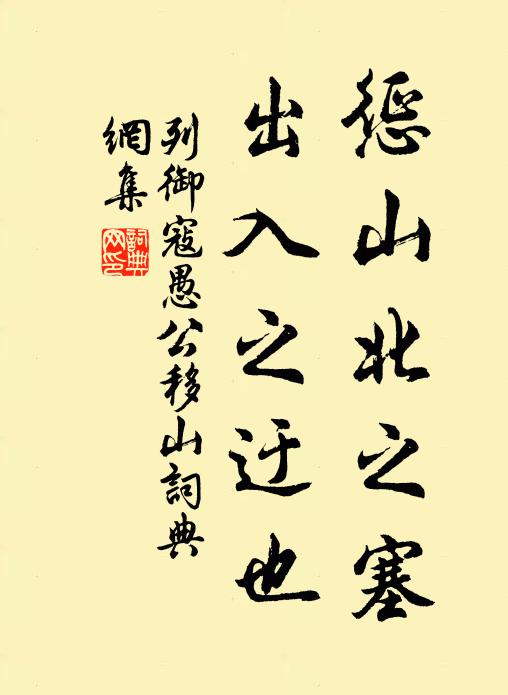 惩山北之塞
出入之迂也
列御寇愚公移山詞典
網集
詞典
网印